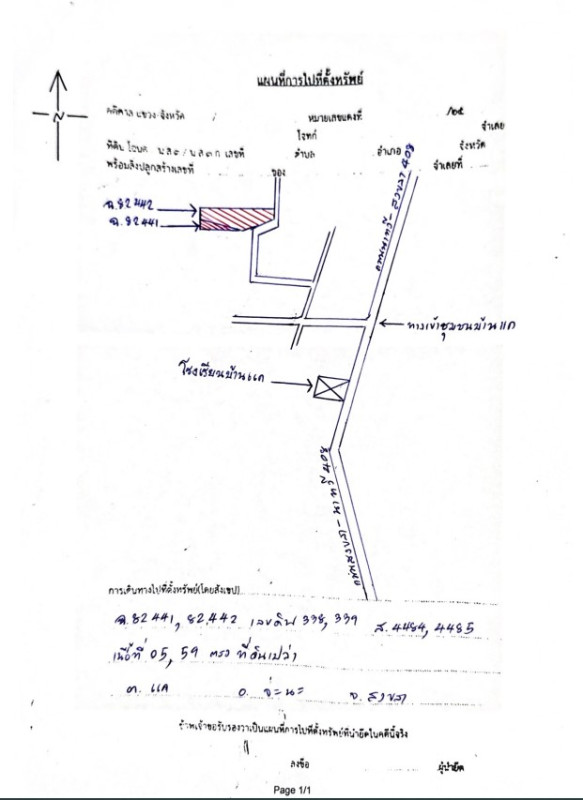 แผนที่การไปที่ตั้งทรัพย์
N
คดีศาลแขวง-จังหวัด หมายเลขแดงที่ /๒๕
โจทก์ จำเลย
ที่ดิน โฉนด น.ส.๓ / น.ส.๓ ก เลขที่ ตำบล อำเภอ จังหวัด
พร้อมสิ่งปลูกสร้างเลขที่ ของ จำเลยที่
ฉ.82442
ฉ.82441
ถนนนาทวี-สงขลา 408
ทางเข้าชุมชนบ้านแค
โรงเรียนบ้านแค
ถนนสงขลา-นาทวี 408
การเดินทางไปที่ตั้งทรัพย์(โดยสังเขป)
ฉ.82441, 82442 เลขดิน 338, 339 ส. 4484, 4485
เนื้อที่ 05, 59 ตรว ที่ดินเปล่า
ต. แค อ. จะนะ จ. สงขลา
ข้าพเจ้าขอรับรองว่าเป็นแผนที่การไปที่ตั้งทรัพย์ที่นำยึดในคดีนี้จริง
ลงชื่อ ผู้นำยึด
Page 1/1